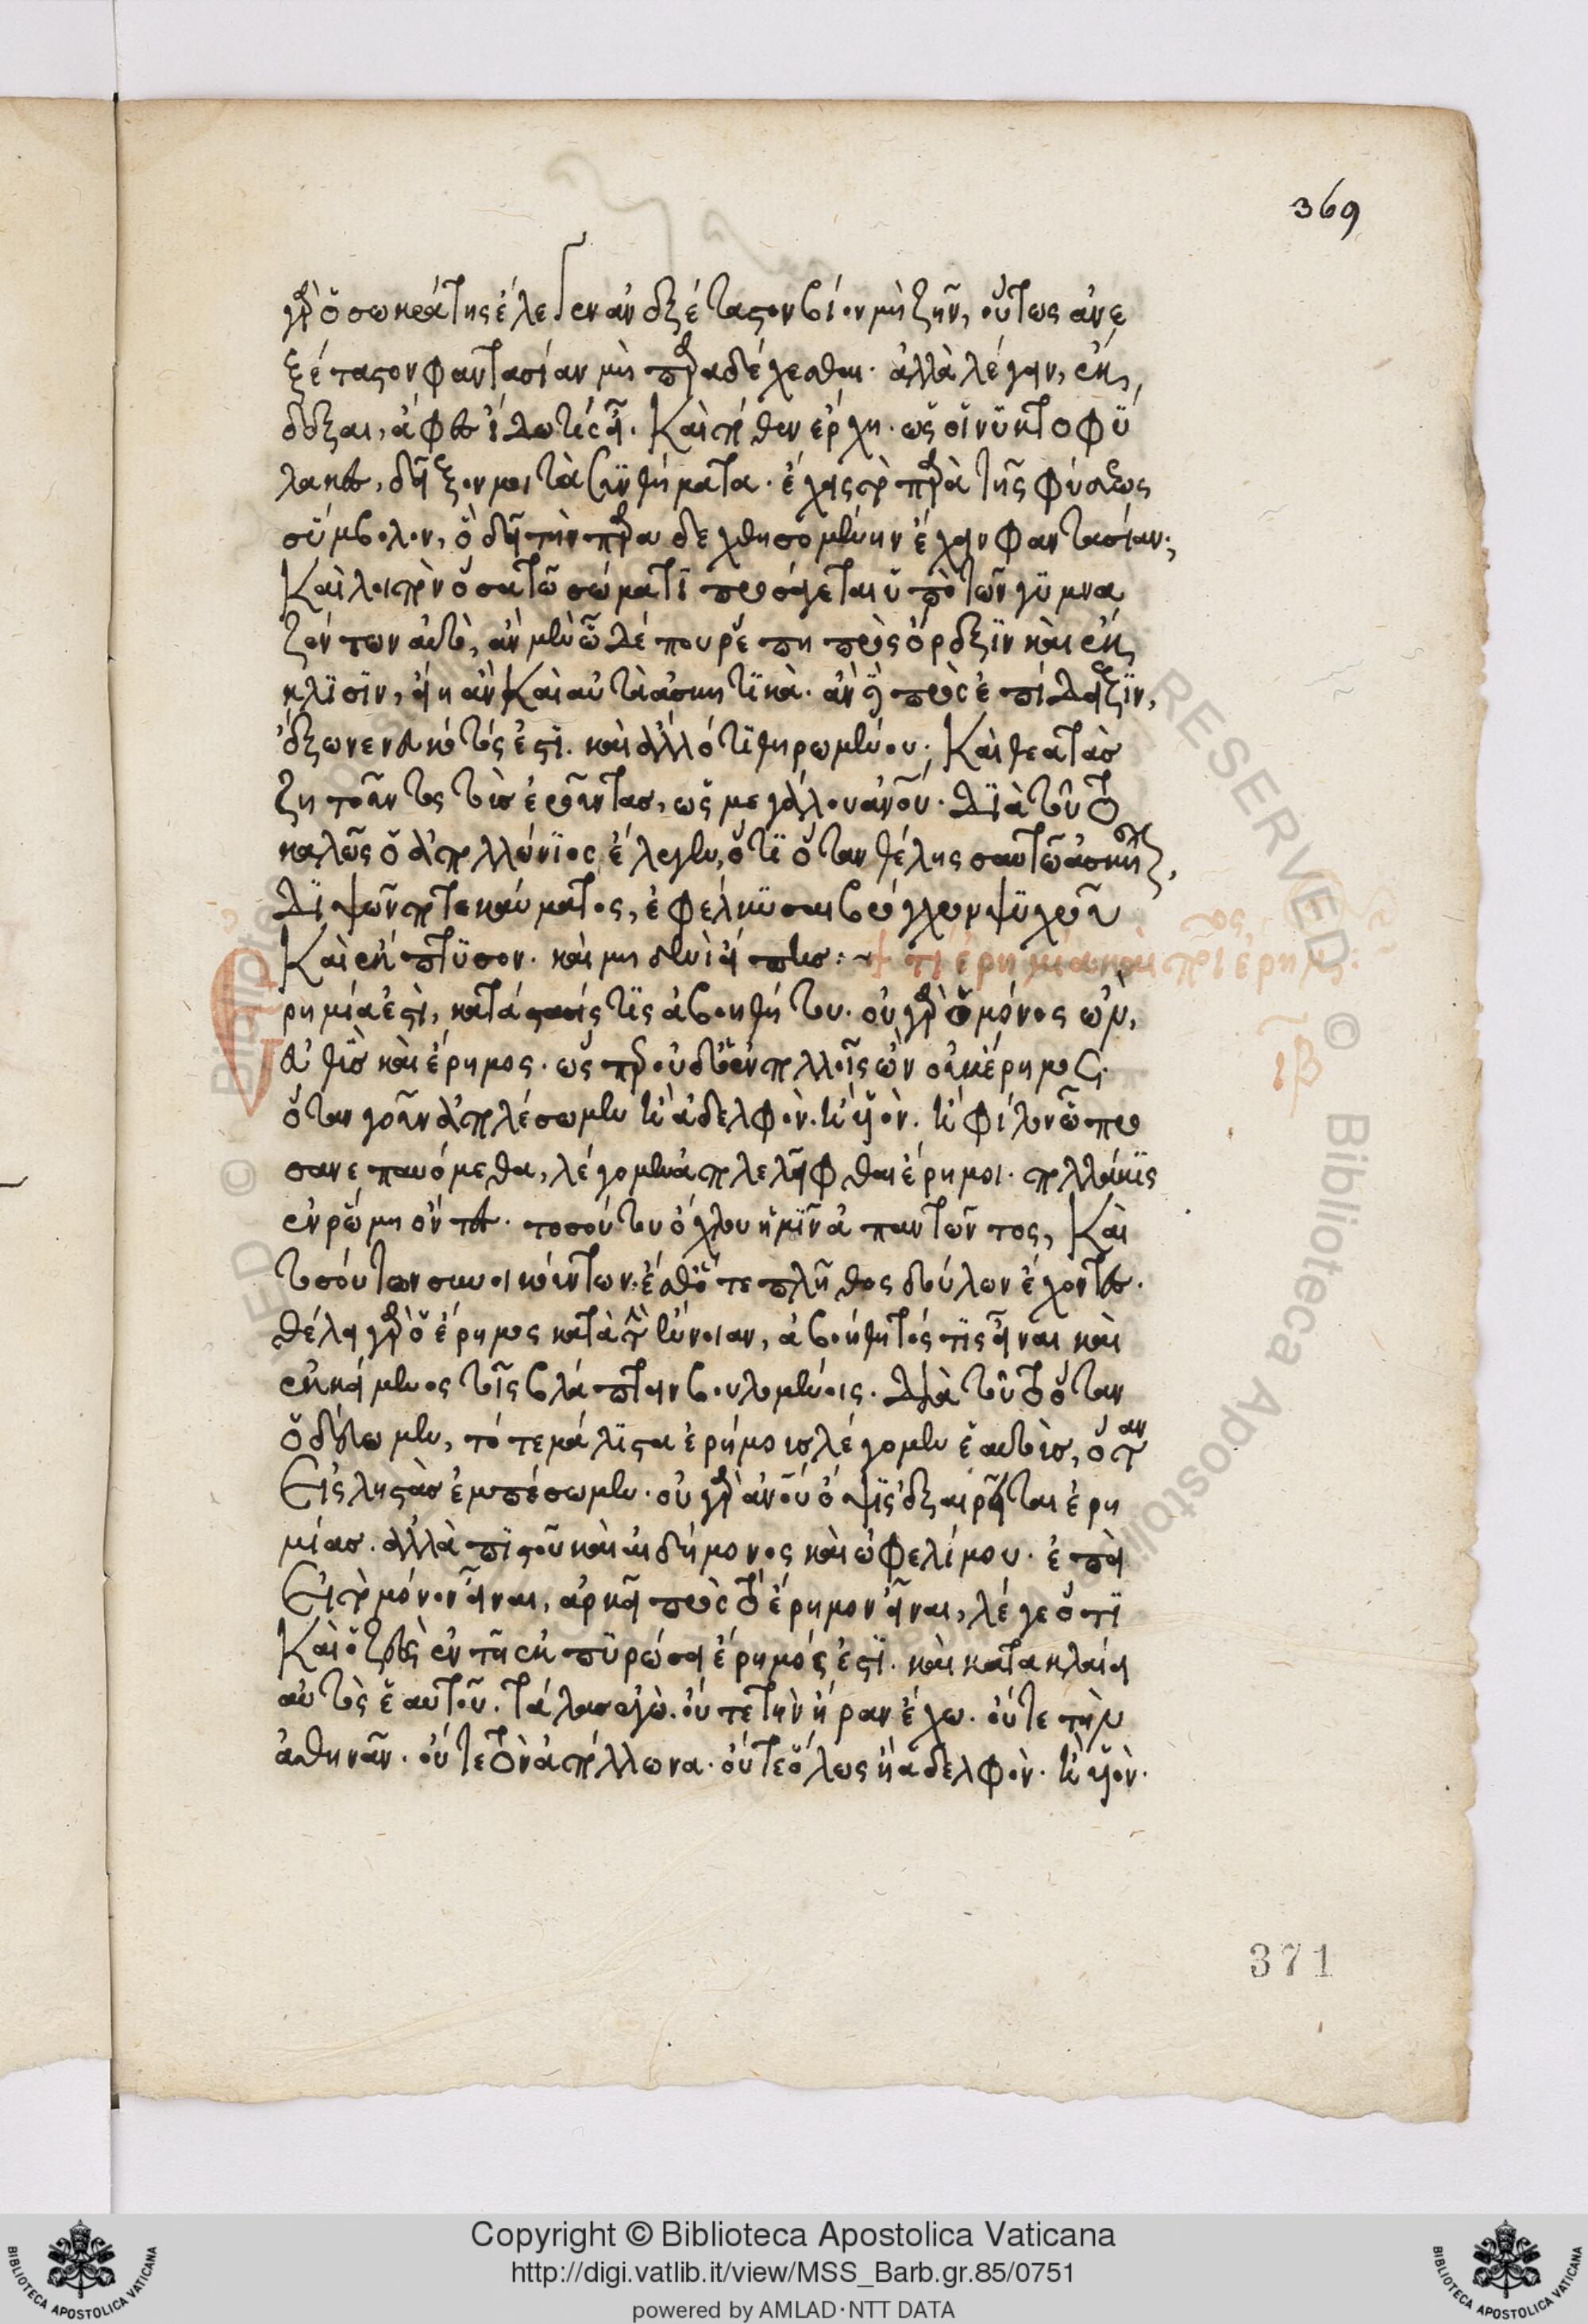 369
γὰρ ὁ σωκράτης ἔλεγεν ἀνεξέταστον βίον μὴ ζῆν, οὕτως ἀνε
ξέταστον φαντασίαν μὴ παραδέχεσθαι. ἀλλὰ λέγειν, ἐκ
δεξαι, ἄφες ἴδω τίς εἶ. Καὶ πόθεν ἔρχῃ. ὡς οἱ νυκτοφύ
λακες, δεῖξόν μοι τὰ συνθήματα. ἔχεις τὸ παρὰ τῆς φύσεως
σύμβολον, ὃ δεῖ τὴν παραδεχθησομένην ἔχειν φαντασίαν;
Καὶ λοιπὸν ὅσα τῶ σώματι προσάγεται ὑπὸ τῶν γυμνα
ζόντων αὐτὸ, ἂν μὲν ὧδέ που ῥέπῃ πρὸς ὄρεξιν καὶ ἔκ
κλισιν, εἴη ἂν καὶ αὐτὰ ἀσκητικὰ. ἂν δὲ πρὸς ἐπίδειξιν,
ἔξω νενευκότος ἐστὶ. καὶ ἄλλό τι θηρωμένου. Καὶ θεατὰσ
ζητοῦντος τοὺσ ἐροῦντασ, ὢ μεγάλου ἀνου. Διὰ τοῦτο
καλῶς ὁ ἀπολλώνιος ἔλεγεν, ὅτι ὅταν θέλῃς σαυτῶ ἀσκῆσαι,
Διψῶν ποτε καύματος, ἐφέλκυσαι βρόγχον ψυχροῦ
Καὶ ἔκπτυσον. καὶ μηδενὶ εἴπῃσ: ~ + τί ἐρημία καὶ ποῖος ἔρημος.
ρημία ἐστὶ, κατάστασίς τις ἀβοηθήτου. οὐ γὰρ ὁ μόνος ὢν,
εὐθὺσ καὶ ἔρημος. ὥσπερ οὐδ' ὁ ἐν πολλοῖς ὢν οὐκ ἔρημος.
ιβ
ὅταν γοῦν ἀπολέσωμεν ἢ ἀδελφὸν. ἢ υἱὸν. ἢ φίλον ᾧ προ
σανεπαυόμεθα, λέγομεν ἀπολελεῖφθαι ἔρημοι. πολλάκις
ἐν ῥώμῃ ὄντες. τοσούτου ὄχλου ἡμῖν ἀπαντῶντος, Καὶ
τοσούτων συνοικούντων. ἔσθ' ὅτε πλῆθος δούλων ἔχοντες.
θέλει γὰρ ὁ ἔρημος κατὰ τὴν ἔννοιαν, ἀβοήθητός τις εἶναι καὶ
ἐκκείμενος τοῖς βλάπτειν βουλομένοις. Διὰ τοῦτο ὅταν
ὁδεύωμεν, τότε μάλιστα ἐρήμουσ λέγομεν ἑαυτοὺσ, ὅταν
Εἰς λῃστὰσ ἐμπέσωμεν. οὐ γὰρ ἀνου ὄψις ἐξαιρεῖται ἐρη
μίασ. ἀλλὰ πιστοῦ καὶ αἰδήμονος καὶ ὠφελίμου. ἐπεὶ
Εἰ τὸ μόνον εἶναι, ἀρκεῖ πρὸς τὸ ἔρημον εἶναι, λέγε ὅτι
Καὶ ὁ ζεὺς ἐν τῇ ἐκπυρώσει ἔρημός ἐστι. καὶ κατακλαίει
αὐτὸς ἑαυτοῦ. τάλασ ἐγὼ. οὔτε τὴν ἥραν ἔχω. οὔτε τὴν
ἀθηνᾶν. οὔτε τὸν ἀπόλλωνα. οὔτε ὅλως ἢ ἀδελφὸν. ἢ υἱὸν.
371
Copyright © Biblioteca Apostolica Vaticana
http://digi.vatlib.it/view/MSS_Barb.gr.85/0751
powered by AMLAD·NTT DATA